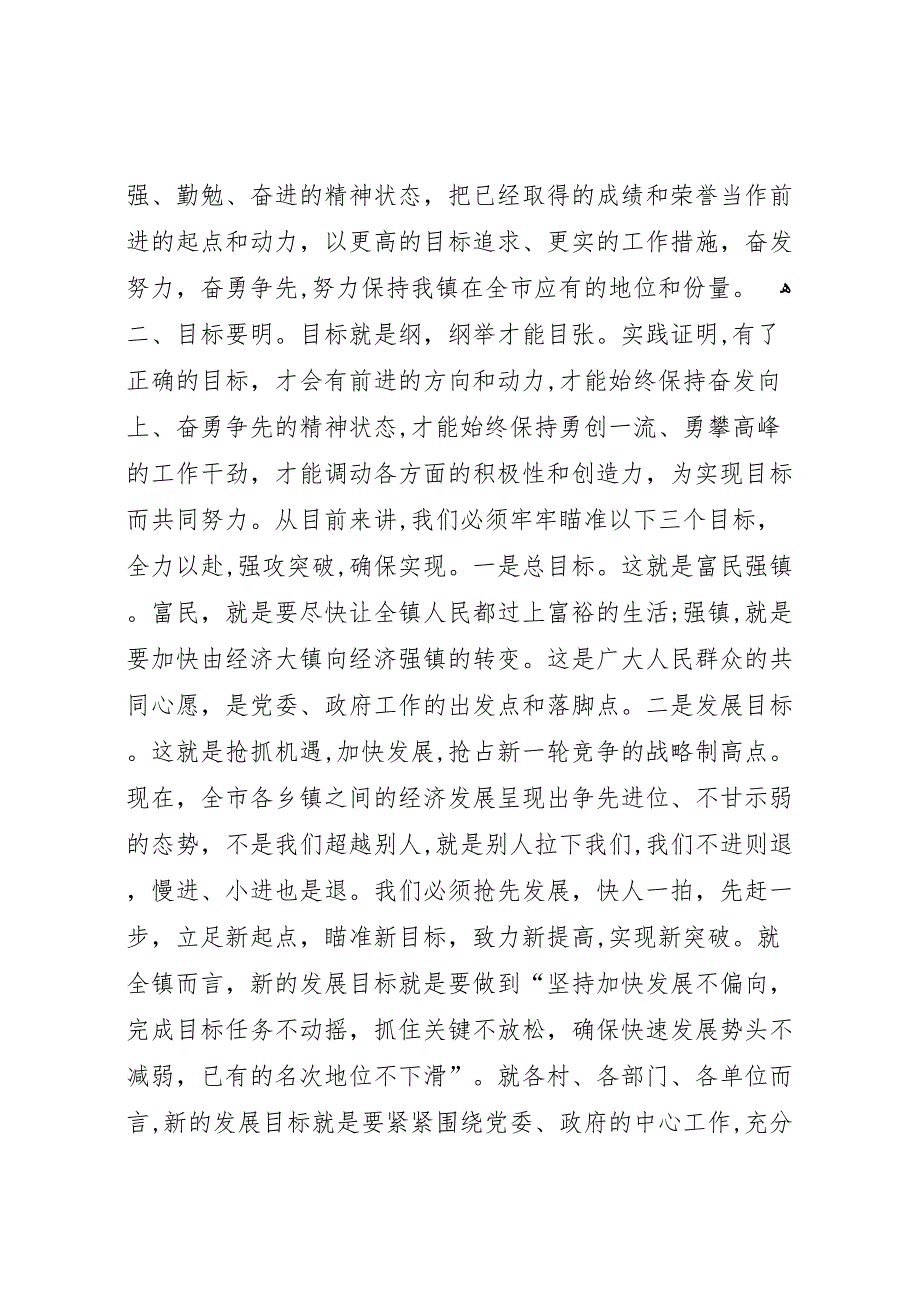 强、勤勉、奋进的精神状态，把已经取得的成绩和荣誉当作前
进的起点和动力，以更高的目标追求、更实的工作措施，奋发
努力，奋勇争先,努力保持我镇在全市应有的地位和份量。 ﻫ
二、目标要明。目标就是纲，纲举才能目张。实践证明,有了
正确的目标，才会有前进的方向和动力,才能始终保持奋发向
上、奋勇争先的精神状态,才能始终保持勇创一流、勇攀高峰
的工作干劲，才能调动各方面的积极性和创造力，为实现目标
而共同努力。从目前来讲,我们必须牢牢瞄准以下三个目标，
全力以赴,强攻突破,确保实现。一是总目标。这就是富民强镇
。富民，就是要尽快让全镇人民都过上富裕的生活;强镇,就是
要加快由经济大镇向经济强镇的转变。这是广大人民群众的共
同心愿，是党委、政府工作的出发点和落脚点。二是发展目标
。这就是抢抓机遇,加快发展,抢占新一轮竞争的战略制高点。
现在，全市各乡镇之间的经济发展呈现出争先进位、不甘示弱
的态势，不是我们超越别人,就是别人拉下我们,我们不进则退
，慢进、小进也是退。我们必须抢先发展，快人一拍，先赶一
步，立足新起点，瞄准新目标，致力新提高,实现新突破。就
全镇而言，新的发展目标就是要做到“坚持加快发展不偏向，
完成目标任务不动摇，抓住关键不放松，确保快速发展势头不
减弱，已有的名次地位不下滑”。就各村、各部门、各单位而
言,新的发展目标就是要紧紧围绕党委、政府的中心工作,充分